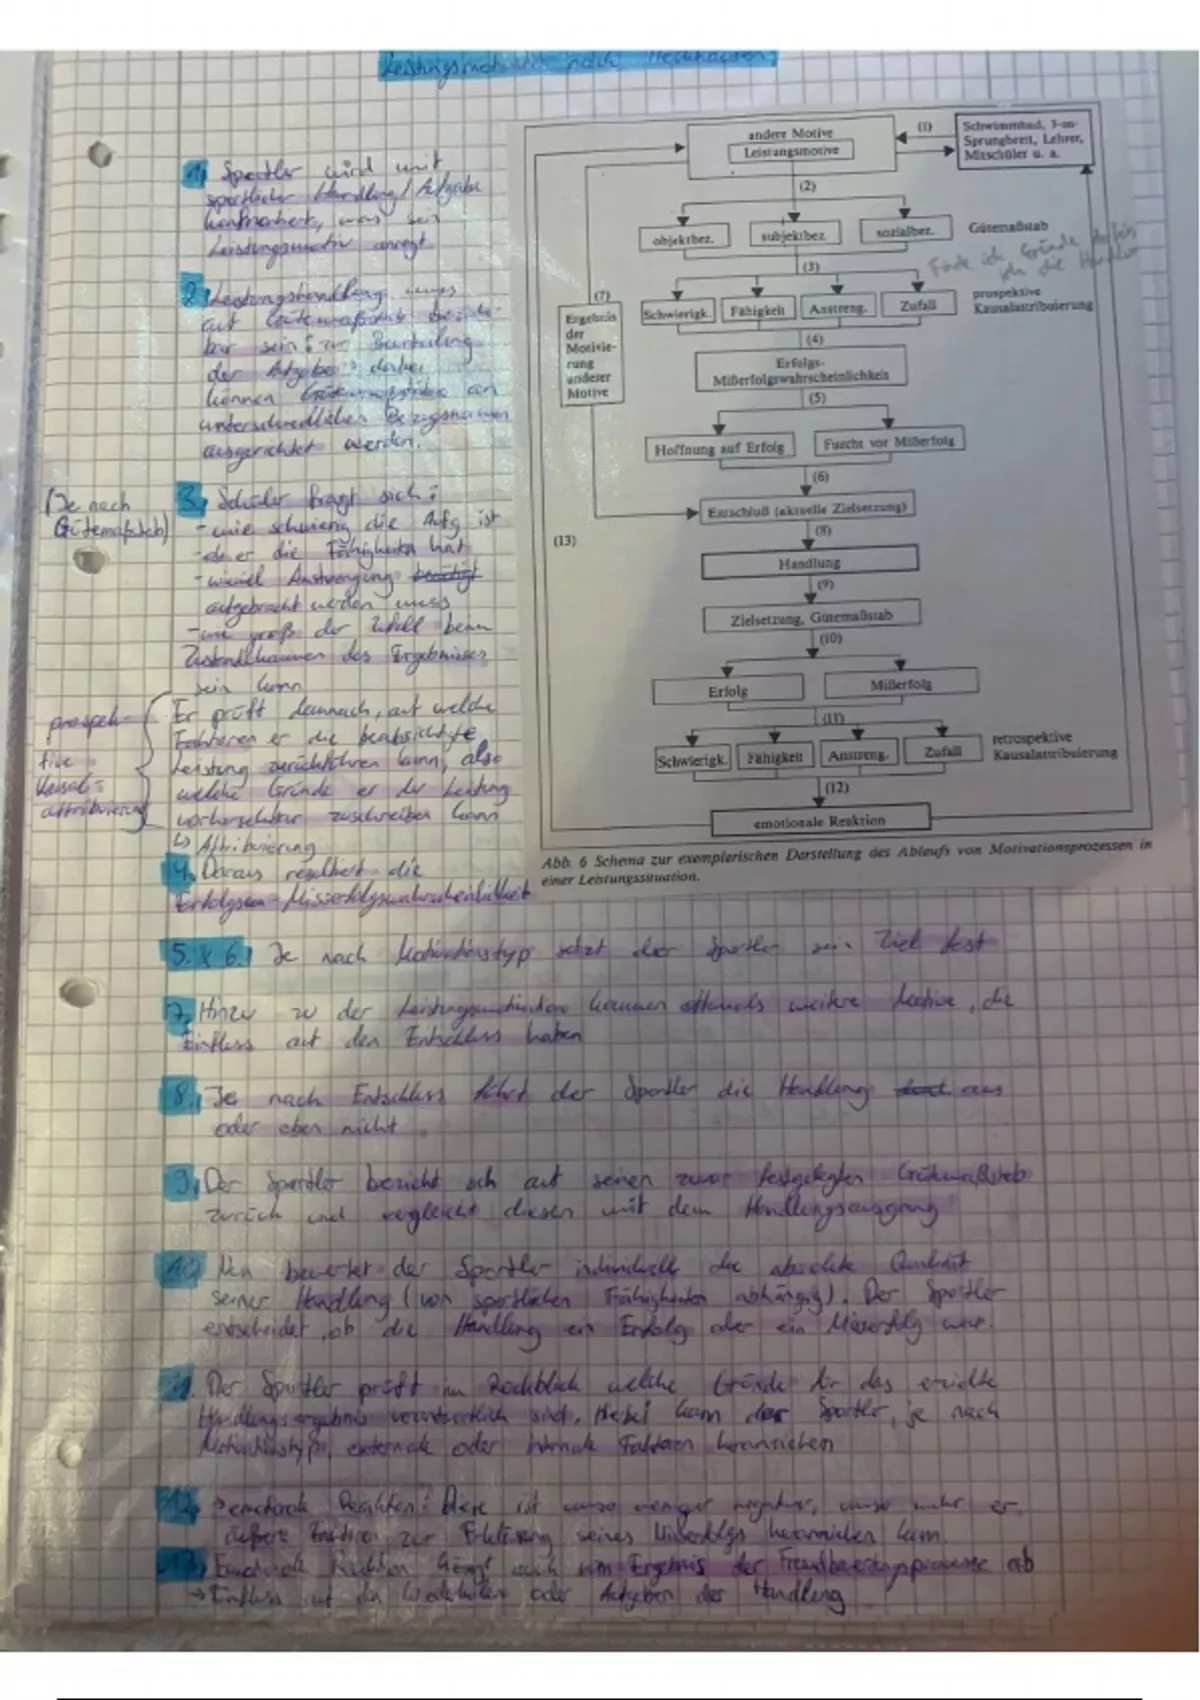 Leistungsmotivation nach Heckhausen
1) Sportler wird mit
sportlicher Handlung/Aufgabe
konfrontiert, was sein
Leistungsmotiv anregt
2) Leistungshandlung muss
auf Gütemaßstab bezieh-
bar sein: zur Beurteilung
der Aufgabe; dabei
können Gütemaßstäbe an
unterschiedlichen Bezugsnormen
ausgerichtet werden.
(Je nach
Gütemaßstab)
3) Schüler fragt sich:
- wie schwierig die Aufg ist
- ob er die Fähigkeiten hat
- wieviel Anstrengung benötigt
aufgebracht werden muss
- wie groß der Zufall beim
Zustandekommen des Ergebnisses
sein kann
Er prüft demnach, auf welche
Faktoren er die beabsichtigte
Leistung zurückführen kann, also
welche Gründe er der Leistung
vorhersehbar zuschreiben kann
↳ Attribuierung
prospek-
tive
Kausal-
attribuierung
4) Daraus resultiert die
Erfolgs- Misserfolgswahrscheinlichkeit
andere Motive
Leistungsmotive
(1)
Schwimmbad, 3-m-
Sprungbrett, Lehrer,
Mitschüler u. a.
(2)
objektbez.
subjektbez.
sozialbez.
Gütemaßstab
Finde ich Gründe dafür
(3)
Schwierigk.
Fähigkeit
Anstreng.
Zufall
prospektive
Kausalattribuierung
(4)
(7)
Ergebnis
der
Motivie-
rung
anderer
Motive
Erfolgs-
Mißerfolgswahrscheinlichkeit
(5)
Hoffnung auf Erfolg
Furcht vor Mißerfolg
(6)
Entschluß (aktuelle Zielsetzung)
(8)
(13)
Handlung
(9)
Zielsetzung, Gütemaßstab
(10)
Erfolg
Mißerfolg
(11)
Schwierigk.
Fähigkeit
Anstreng.
Zufall
retrospektive
Kausalattribuierung
(12)
emotionale Reaktion
Abb. 6 Schema zur exemplarischen Darstellung des Ablaufs von Motivationsprozessen in
einer Leistungssituation.
5. & 6.) Je nach Motivationstyp setzt der Sportler sein Ziel fest
7) Hinzu zu der Leistungsmotivation kommen oftmals weitere Motive, die
Einfluss auf den Entschluss haben
8.) Je nach Entschluss führt der Sportler die Handlung aus
oder eben nicht.
9) Der Sportler bezieht sich auf seinen zuvor festgelegten Gütemaßstab
zurück und vergleicht diesen mit dem Handlungsausgang
10) Nun bewertet der Sportler individuell die absolute Qualität
seiner Handlung (von sportlichen Fähigkeiten abhängig). Der Sportler
entscheidet, ob die Handlung ein Erfolg oder ein Misserfolg war.
11. Der Sportler prüft im Rückblick welche Gründe für das erzielte
Handlungsergebnis verantwortlich sind. Hiebei kann der Sportler, je nach
Motivationstyp, externale oder internale Faktoren heranziehen
12) → emotionale Reaktion: Diese ist umso weniger negativer, umso mehr er
äußere Faktoren zur Erklärung seines Misserfolgs heranziehen kann
13) Emotionale Reaktion hängt auch vom Ergebnis der Fremdbewertungsprozesse ab
→ Einfluss auf das Wiederholen oder Aufgeben der Handlung